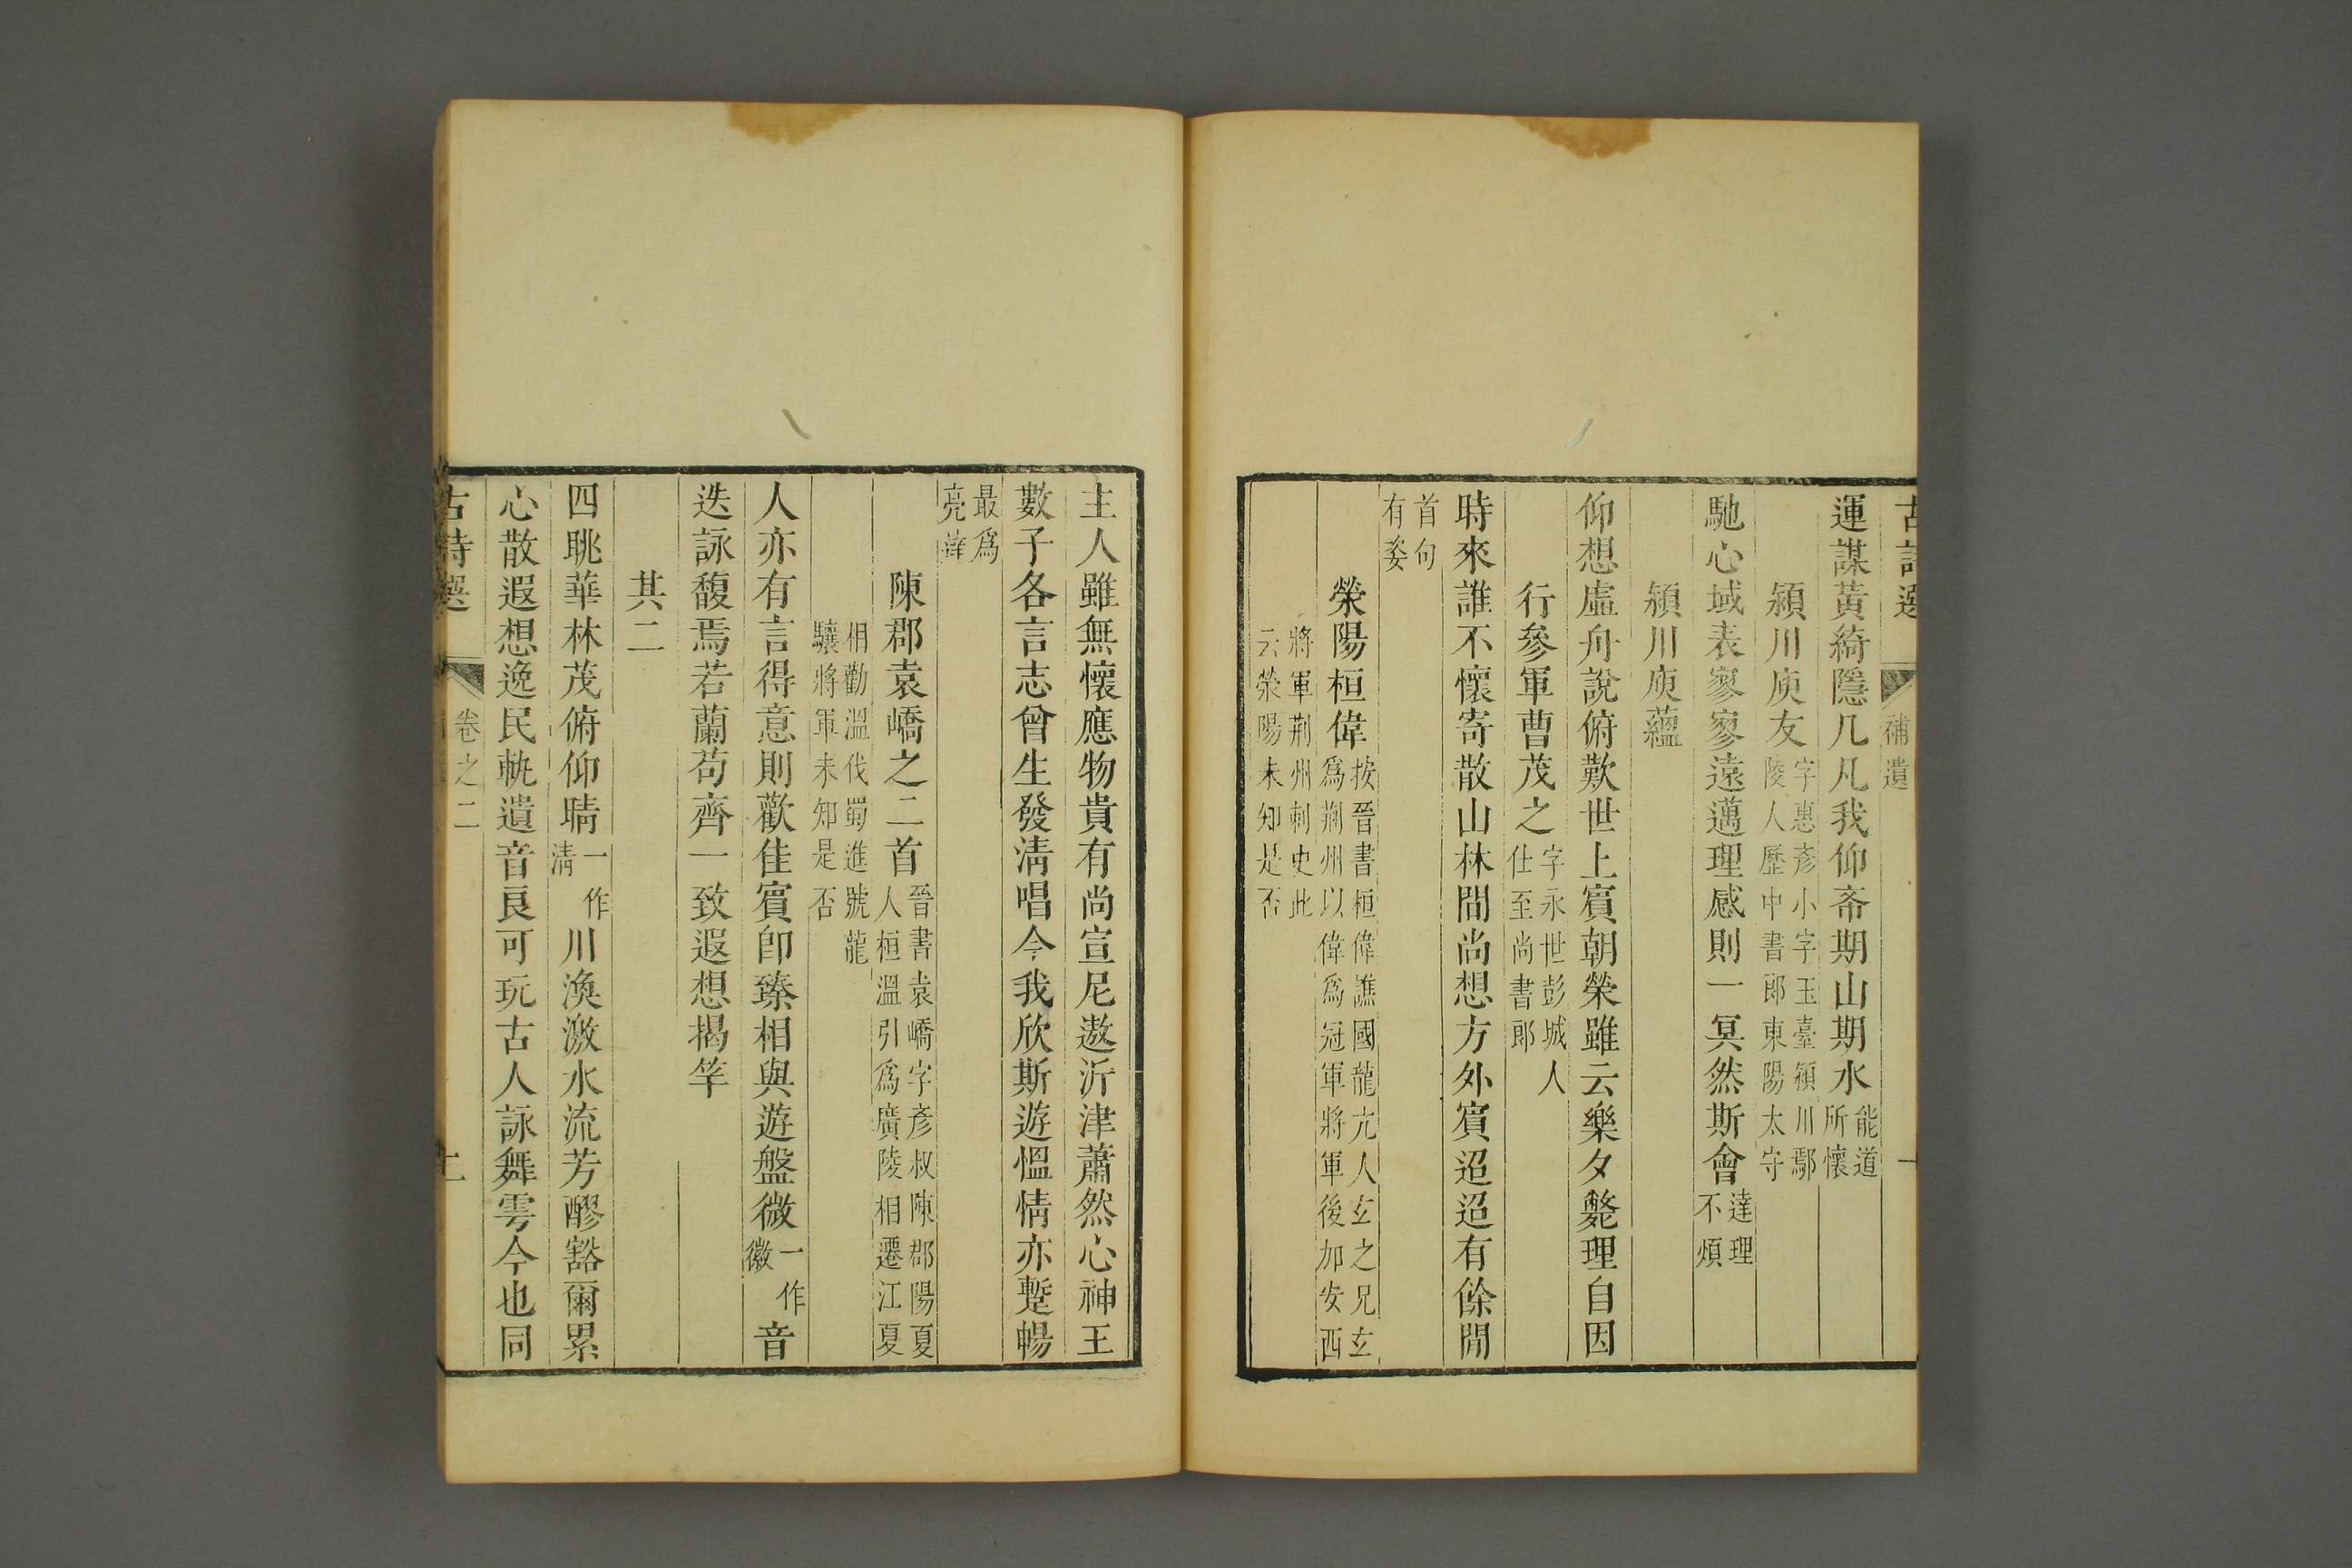 古詩選 補遺
運謀黃綺隱几凡我仰希期山期水能道所懷
潁川庾友字惠彥小字玉臺潁川鄢陵人歷中書郎東陽太守
馳心域表寥寥遠邁理感則一冥然斯會達理不煩
潁川庾蘊
仰想虛舟說俯歎世上賓朝榮雖云樂夕斃理自因
行參軍曹茂之字永世彭城人仕至尚書郎
時來誰不懷寄散山林間尚想方外賓迢迢有餘閒
首句有姿
滎陽桓偉按晉書桓偉譙國龍亢人玄之兄玄為荆州以偉爲冠軍將軍後加安西
將軍荆州刺史此云滎陽未知是否
主人雖無懷應物貴有尚宣尼遨沂津蕭然心神王
數子各言志曾生發清唱今我欣斯遊慍情亦蹔暢
最爲亮
陳郡袁嶠之二首晉書袁嶠字彥叔陳郡陽夏人桓溫引爲廣陵相遷江夏
相勸溫伐蜀進號龍驤將軍未知是否
人亦有言得意則歡佳賓卽臻相與遊盤微一作徽音
迭詠馥焉若蘭苟齊一致遐想揭竿
其二
四眺華林茂俯仰晴一作清川渙激水流芳醪豁爾累
心散遐想逸民軌遺音良可玩古人詠舞雩今也同
古詩選 卷之二